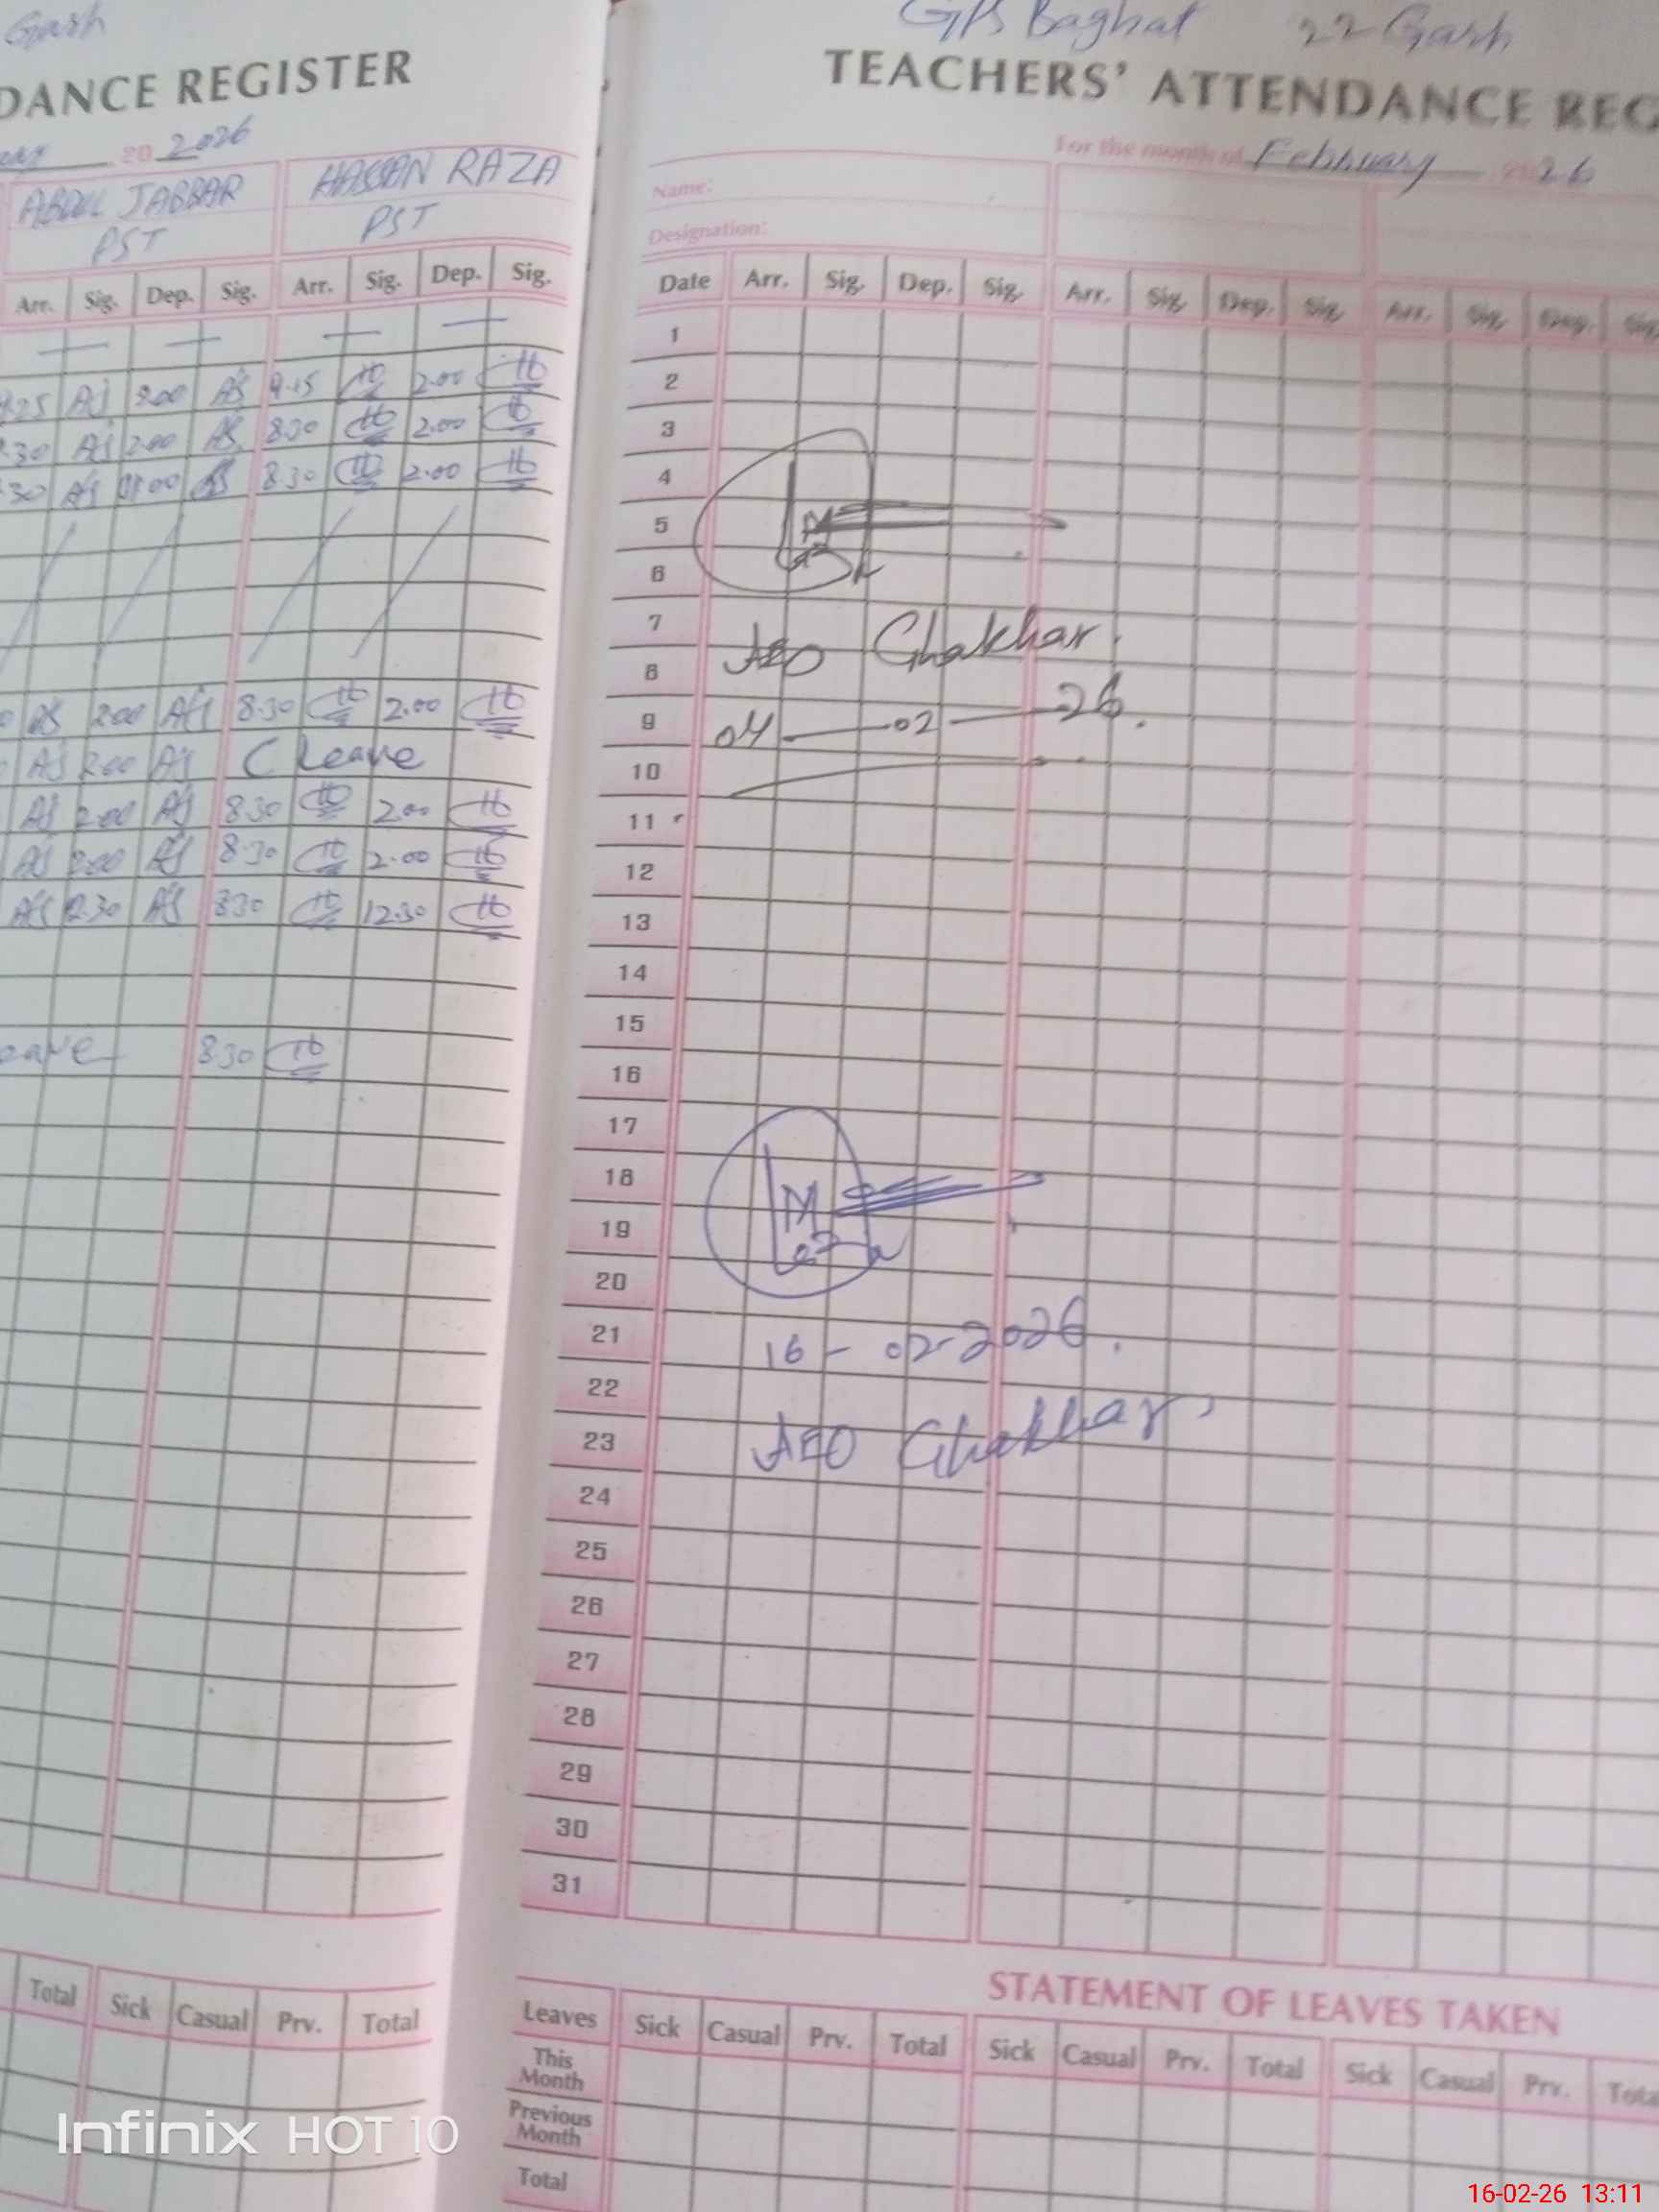 Garh
DANCE REGISTER
20 2026
ABDUL JABBAR
PST
HASSAN RAZA
PST
Arr. Sig. Dep. Sig. Arr. Sig. Dep. Sig.
.25 AJ 2.00 AJ 9.15 2.00
.30 AJ 2.00 AJ 8.30 2.00
.30 AJ 8.30 2.00
AJ 2.00 AJ 8.30 2.00
AJ 2.00 AJ C leave
AJ 2.00 AJ 8.30 2.00
AJ 2.00 AJ 8.30 2.00
AJ 12.30 AJ 8.30 12.30
eave 8.30
Total Sick Casual Prv. Total
GPS Baghat 22 Garh
TEACHERS' ATTENDANCE REG
For the month of February 26
Name:
Designation:
Date Arr. Sig. Dep. Sig. Arr. Sig. Dep. Sig. Arr. Sig. Dep. Sig.
1
2
3
4
5
6
7
AEO Ghakhar.
8
9
04 — 02 — 26.
10
11
12
13
14
15
16
17
18
19
20
21
16-02-2026.
22
23
AEO Ghakhar
24
25
26
27
28
29
30
31
STATEMENT OF LEAVES TAKEN
Leaves Sick Casual Prv. Total Sick Casual Prv. Total Sick Casual Prv. Tota
This Month
Previous Month
Total
Infinix HOT 10
16-02-26 13:11